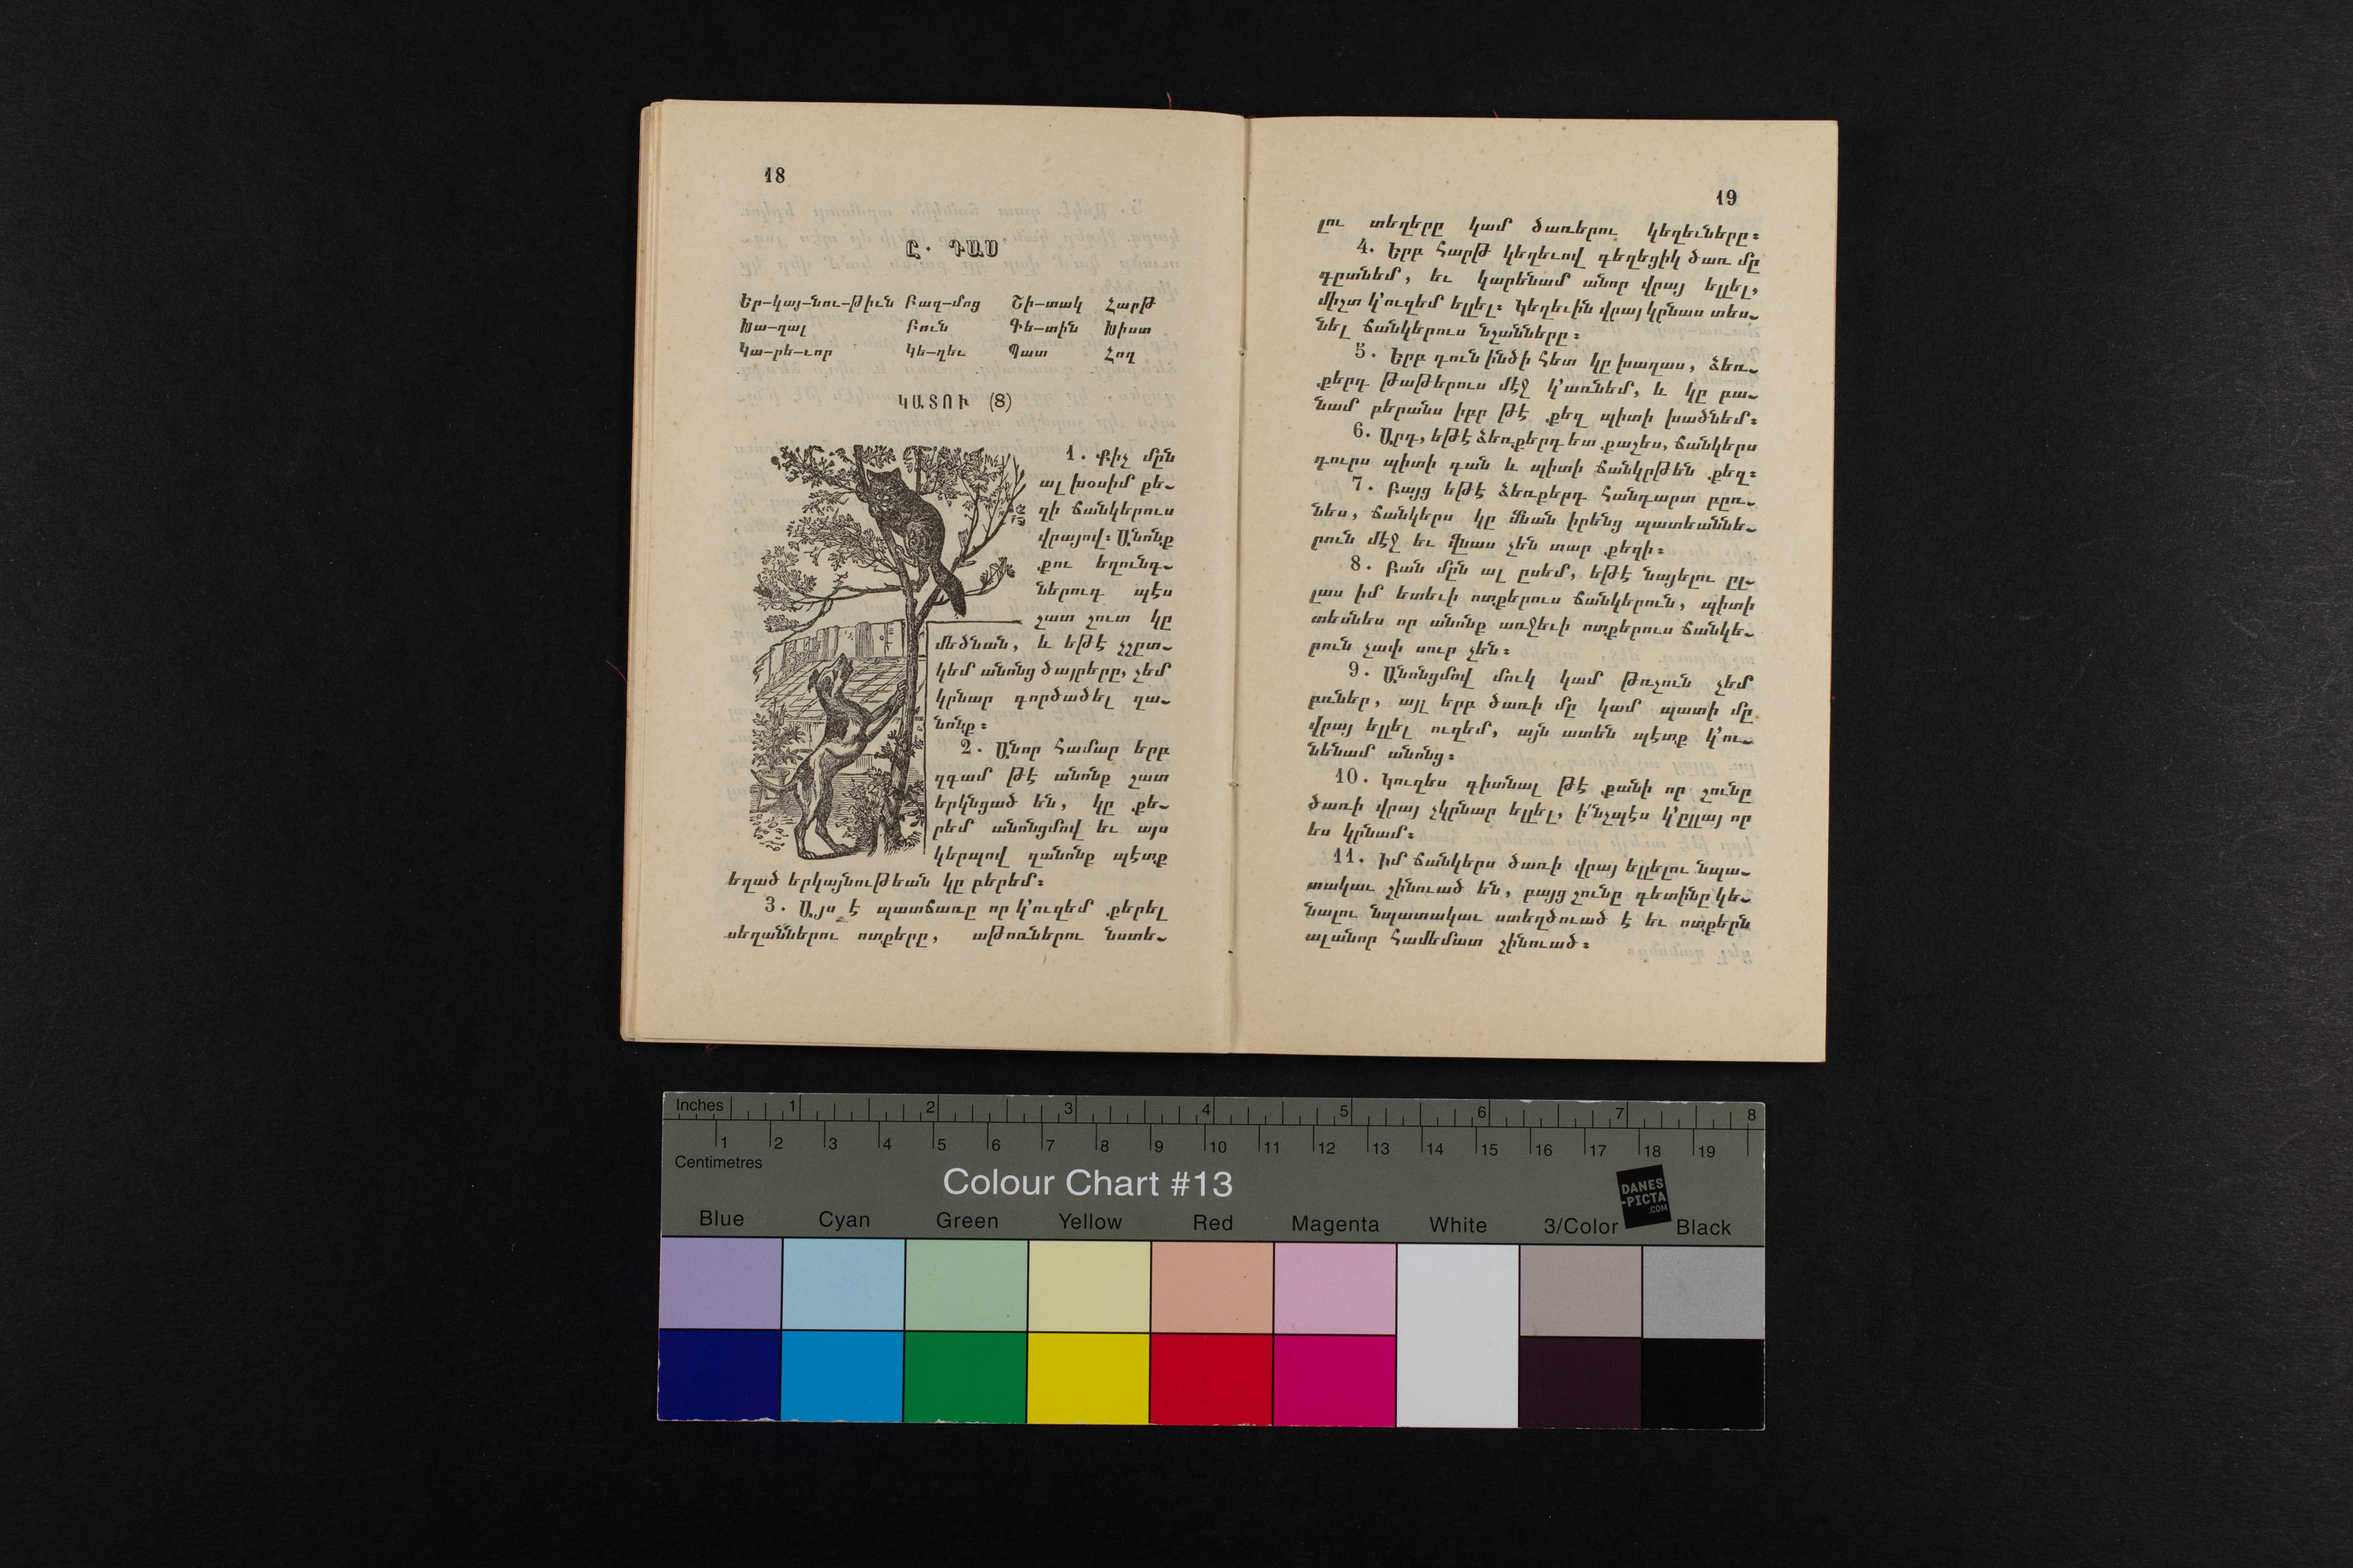 18
Ը. ԴԱՍ
Եր-կայ-նու-թիւն Բազ-մոց Շի-տակ Հարթ
Խա-ղալ Բուն Գե-տին Խիստ
Կա-րե-ւոր Կե-ղեւ Պատ Հող
ԿԱՏՈՒ (8)
1. Քիչ մըն
ալ խօսիմ քե-
զի ճանկերուս
վրայով։ Անոնք
քու եղունգ-
ներուդ պէս
շատ շուտ կը
մեծնան, և եթէ չշըտ-
կեմ անոնց ծայրերը, չեմ
կրնար գործածել զա-
նոնք։
2. Անոր համար երբ
զգամ թէ անոնք շատ
երկնցած են, կը քե-
րեմ անոնցմով եւ այս
կերպով զանոնք պէտք
եղած երկայնութեան կը բերեմ։
3. Այս է պատճառը որ կ'ուզեմ քերել
սեղաններու ոտքերը, աթոռներու նստե-
19
լու տեղերը կամ ծառերու կեղեւները։
4. Երբ հարթ կեղեւով գեղեցիկ ծառ մը
գըտնեմ, եւ կարենամ անոր վրայ ելլել,
միշտ կ'ուզեմ ելլել։ Կեղեւին վրայ կրնաս տես-
նել ճանկերուս նշանները։
5. Երբ դուն ինծի հետ կը խաղաս, ձեռ-
քերդ թաթերուս մէջ կ'առնեմ, և կը բա-
նամ բերանս իբր թէ քեզ պիտի խածնեմ։
6. Արդ, եթէ ձեռքերդ ետ քաշես, ճանկերս
դուրս պիտի գան և պիտի ճանկրթեն քեզ։
7. Բայց եթէ ձեռքերդ հանդարտ բըռ-
նես, ճանկերս կը մնան իրենց պատեաննե-
րուն մէջ եւ վնաս չեն տար քեզի։
8. Բան մըն ալ ըսեմ, եթէ նայելու ըլ-
լաս իմ ետեւի ոտքերուս ճանկերուն, պիտի
տեսնես որ անոնք առջեւի ոտքերուս ճանկե-
րուն չափ սուր չեն։
9. Անոնցմով մուկ կամ թռչուն չեմ
բռներ, այլ երբ ծառի մը կամ պատի մը
վրայ ելլել ուզեմ, այն ատեն պէտք կ'ու-
նենամ անոնց։
10. Կուզես գիտնալ թէ քանի որ շունը
ծառի վրայ չկրնար ելլել, ի՛նչպէս կ'ըլլայ որ
ես կրնամ։
11. Իմ ճանկերս ծառի վրայ ելլելու նպա-
տակաւ շինուած են, բայց շունը գետինը կե-
նալու նպատակաւ ստեղծուած է եւ ոտքերն
ալ անոր համեմատ շինուած։
Inches 1 2 3 4 5 6 7 8
1 2 3 4 5 6 7 8 9 10 11 12 13 14 15 16 17 18 19
Centimetres
Colour Chart #13
DANES
-PICTA
.COM
Blue Cyan Green Yellow Red Magenta White 3/Color Black